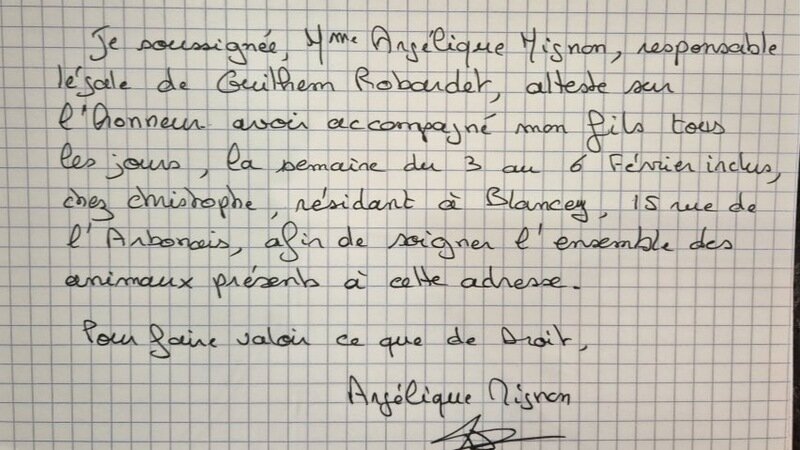 Je soussignée, Mme Angélique Mignon, responsable
légale de Guilhem Robardet, atteste sur
l'honneur avoir accompagné mon fils tous
les jours, la semaine du 3 au 6 Février inclus,
chez christophe, résidant à Blancey, 15 rue de
l'Arbonais, afin de soigner l'ensemble des
animaux présents à cette adresse.
Pour faire valoir ce que de Droit,
Angélique Mignon